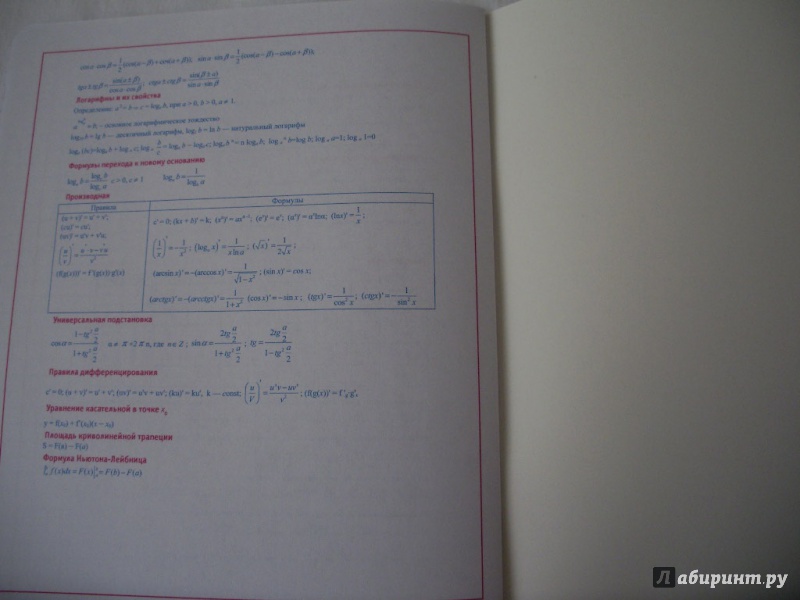 cos α · cos β = 1/2 (cos(α − β) + cos(α + β)); sin α · sin β = 1/2 (cos(α − β) − cos(α + β));
tgα ± tgβ = sin(α ± β)/(cos α · cos β); ctgα ± ctgβ = sin(β ± α)/(sin α · sin β)
Логарифмы и их свойства
Определение: aᶜ = b ⇔ c = logₐ b, при a > 0, b > 0, a ≠ 1.
— основное логарифмическое тождество
log₁₀ b = lg b — десятичный логарифм, logₑ b = ln b — натуральный логарифм
Формулы перехода к новому основанию
logₐ b = log꜀ b / log꜀ a c > 0, c ≠ 1 logₐ b = 1 / log_b a
Производная
Правила Формулы
(u + v)' = u' + v'; c' = 0; (kx + b)' = k; (xⁿ)' = nxⁿ⁻¹; (eˣ)' = eˣ; (aˣ)' = aˣlna; (lnx)' = 1/x;
(cu)' = cu';
(uv)' = u'v + v'u;
(u/v)' = (u'v − v'u)/v² (1/x)' = −1/x²; (logₐ x)' = 1/(x ln a); (√x)' = 1/(2√x);
(f(g(x)))' = f'(g(x))·g'(x) (arcsin x)' = −(arccos x)' = 1/√(1 − x²); (sin x)' = cos x;
(arctgx)' = −(arcctgx)' = 1/(1 + x²) (cos x)' = −sin x; (tgx)' = 1/cos² x; (ctgx)' = −1/sin² x
Универсальная подстановка
cos α = (1 − tg² a/2)/(1 + tg² a/2) где n∈Z; sin α = (2tg a/2)/(1 + tg² a/2); tg = (2tg a/2)/(1 − tg² a/2)
Правила дифференцирования
c' = 0; (u + v)' = u' + v'; (uv)' = u'v + uv'; (ku)' = ku', k — const; (u/v)' = (u'v − uv')/v²; (f(g(x))' =
Уравнение касательной в точке x₀
y = f(x₀) + f'(x₀)(x − x₀)
Площадь криволинейной трапеции
S = F(в) − F(a)
Формула Ньютона-Лейбница
f(x)dx = F(x)|ₐᵇ = F(b) − F(a)
Лабиринт.ру